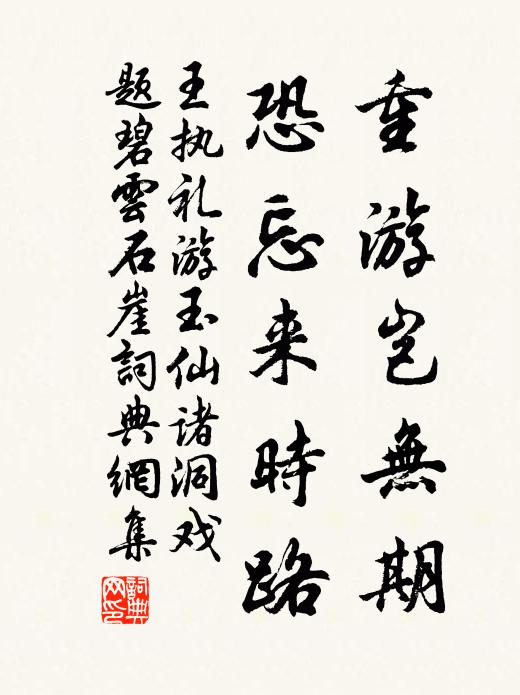 重游岂無期
恐忘来時路
王执礼游玉仙诸洞戏
题碧雲石崖詞典網集
詞典网印